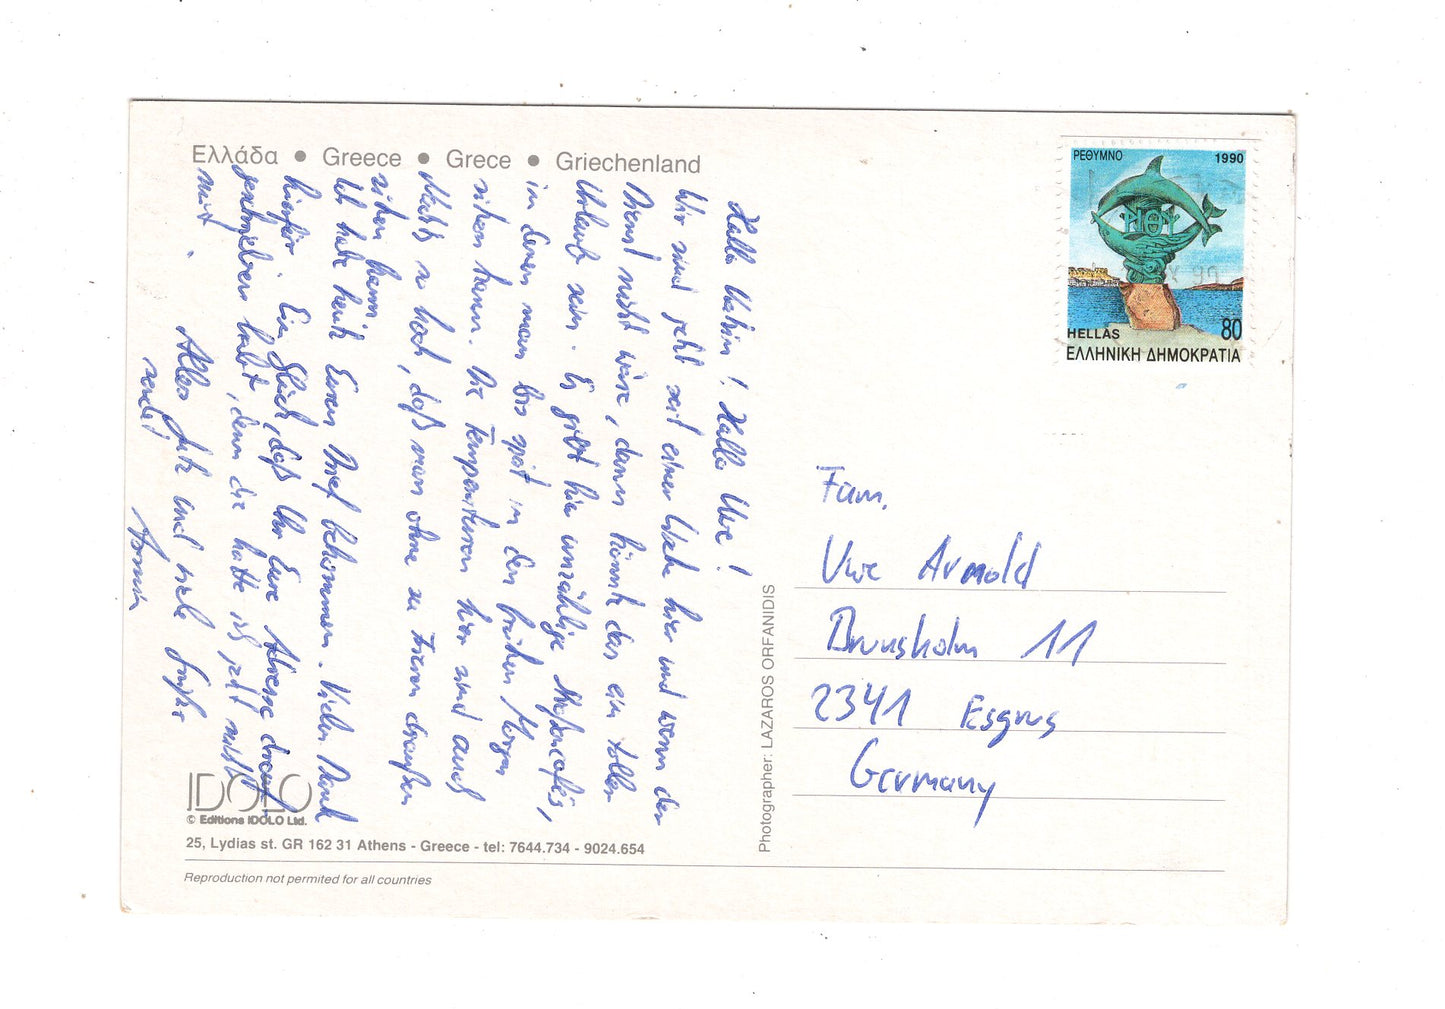 Ελλάδα • Greece • Grece • Griechenland
Hallo Katrin! Hallo Uwe!
Wir sind jetzt seit einer Woche hier und wenn der
Dienst nicht wäre, dann könnte das ein toller
Urlaub sein. Es gibt hier unzählige Straßencafés,
in denen man bis spät in den frühen Morgen
sitzen kann. Die Temperaturen hier sind auch
nachts so hoch, daß man ohne zu frieren draußen
sitzen kann.
Ich habe heute Euren Brief bekommen. Vielen Dank
hierfür. Ein Glück, daß Ihr Eure Adresse drauf
geschrieben habt, denn die hatte ich jetzt nicht
mit.
Alles Gute und viele Grüße
sendet
Armin
ΡΕΘΥΜΝΟ 1990
ΡΙΘΥ
80
HELLAS
ΕΛΛΗΝΙΚΗ ΔΗΜΟΚΡΑΤΙΑ
Fam.
Uwe Arnold
Brunsholm 11
2341 Esgrus
Germany
Photographer: LAZAROS ORFANIDIS
IDOLO
© Editions IDOLO Ltd.
25, Lydias st. GR 162 31 Athens - Greece - tel: 7644.734 - 9024.654
Reproduction not permited for all countries